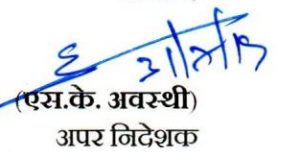 (एस.के. अवस्थी)
अपर निदेशक